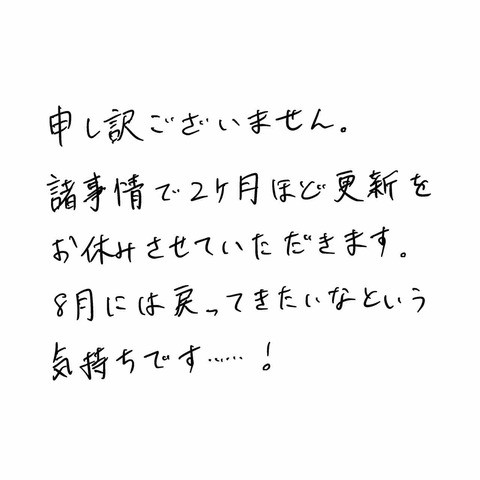 申し訳ございません。
諸事情で2ケ月ほど更新を
お休みさせていただきます。
8月には戻ってきたいなという
気持ちです……!